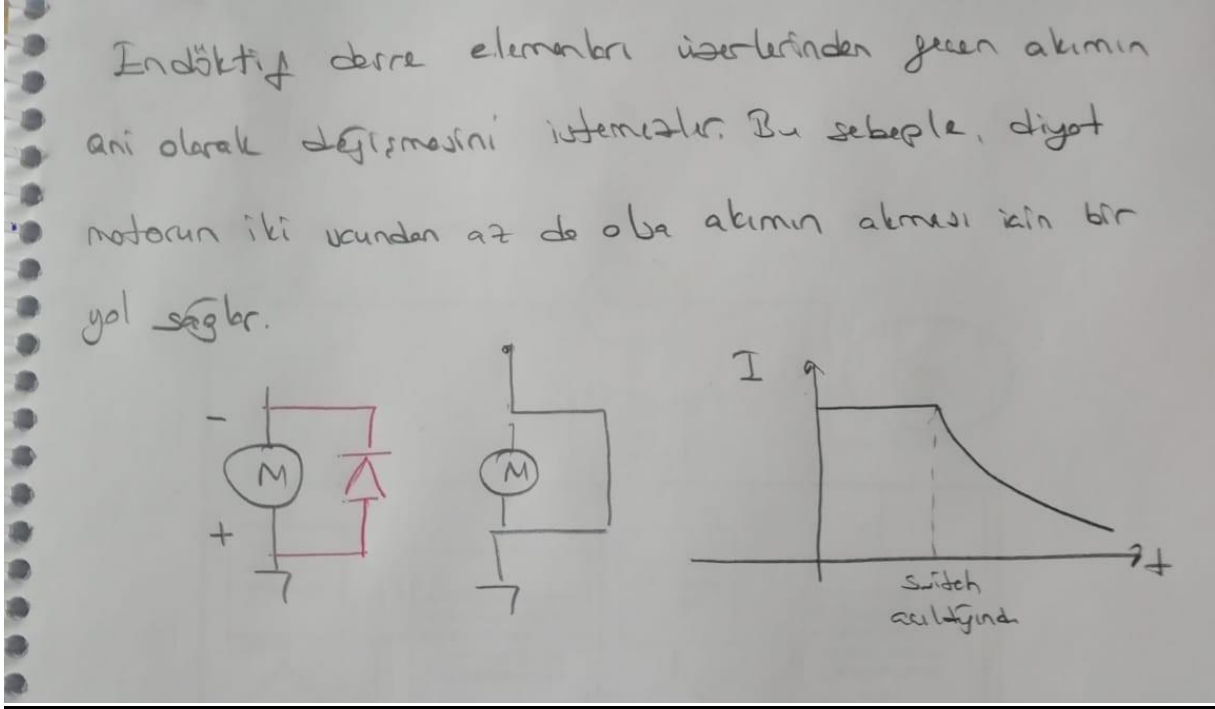 Endüktif devre elemanları üzerlerinden geçen akımın
ani olarak değişmesini istemezler. Bu sebeple, diyot
motorun iki ucundan az da olsa akımın akması için bir
yol sağlar.
I
-
M
M
+
t
switch
açıldığında